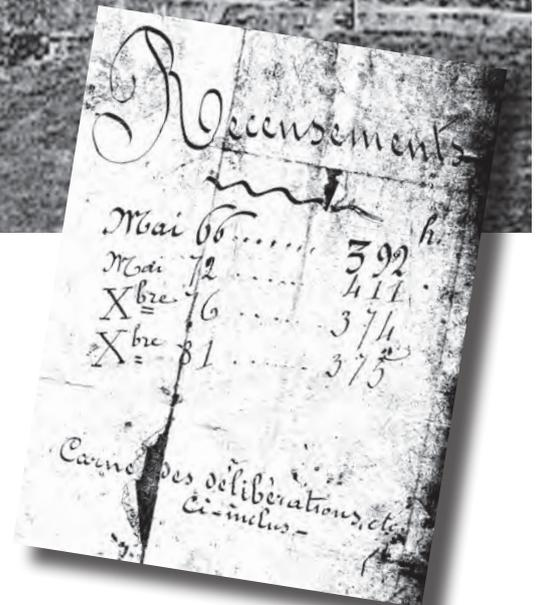 Recensements
h.
Mai 66 ........ 392
Mai 72 ...... 411
Xbre 76 ..... 374
Xbre 81 ....... 375
Carnet des délibérations, etc.
Ci-inclus-